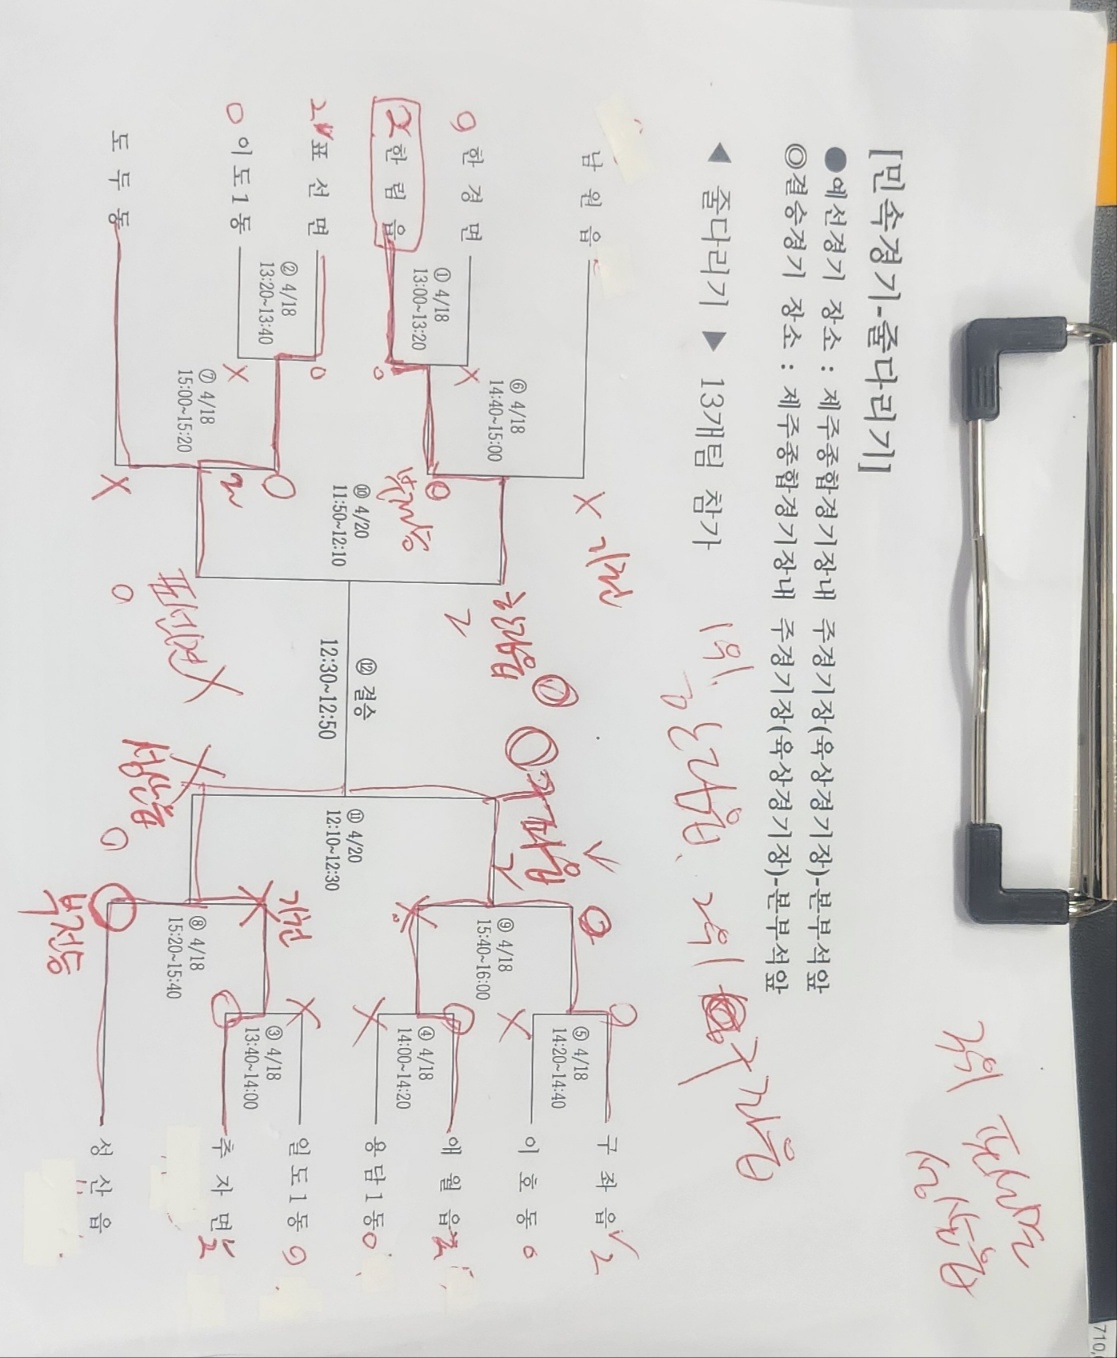 [민속경기-줄다리기]
●예선경기 장소 : 제주종합경기장내 주경기장(육상경기장)-본부석앞
◎결승경기 장소 : 제주종합경기장내 주경기장(육상경기장)-본부석앞
◀ 줄다리기 ▶ 13개팀 참가
1위. 한림읍. 2위 구좌읍
3위 표선면
성산읍
남원읍
X 기권
한경면 0
한림읍 2
① 4/18
13:00~13:20
⑥ 4/18
14:40~15:00
표선면 2
이도1동 0
② 4/18
13:20~13:40
도두동
⑦ 4/18
15:00~15:20
2
⑩ 4/20
11:50~12:10
한림읍 ①
2
표선면 X
0
⑫ 결승
12:30~12:50
구좌읍
2
성산읍
0
⑪ 4/20
12:10~12:30
⑨ 4/18
15:40~16:00
⑧ 4/18
15:20~15:40
기권
부전승
⑤ 4/18
14:20~14:40
④ 4/18
14:00~14:20
③ 4/18
13:40~14:00
구좌읍 2
이호동 0
애월읍 2
용담1동 0
일도1동 0
추자면 2
성산읍
710,